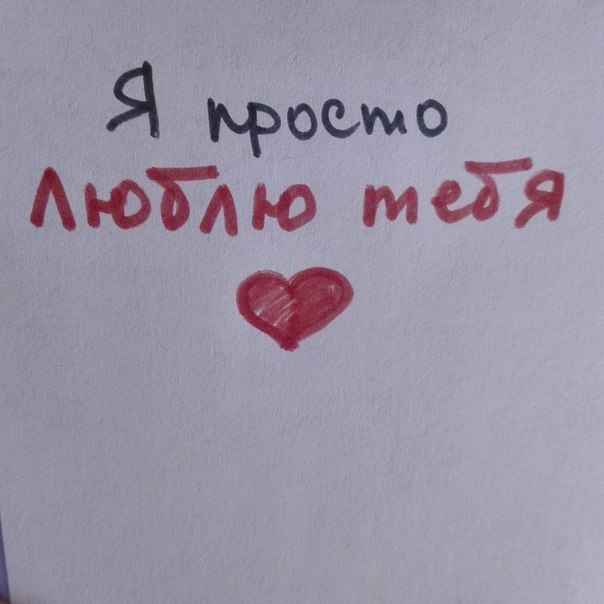 Я просто
люблю тебя